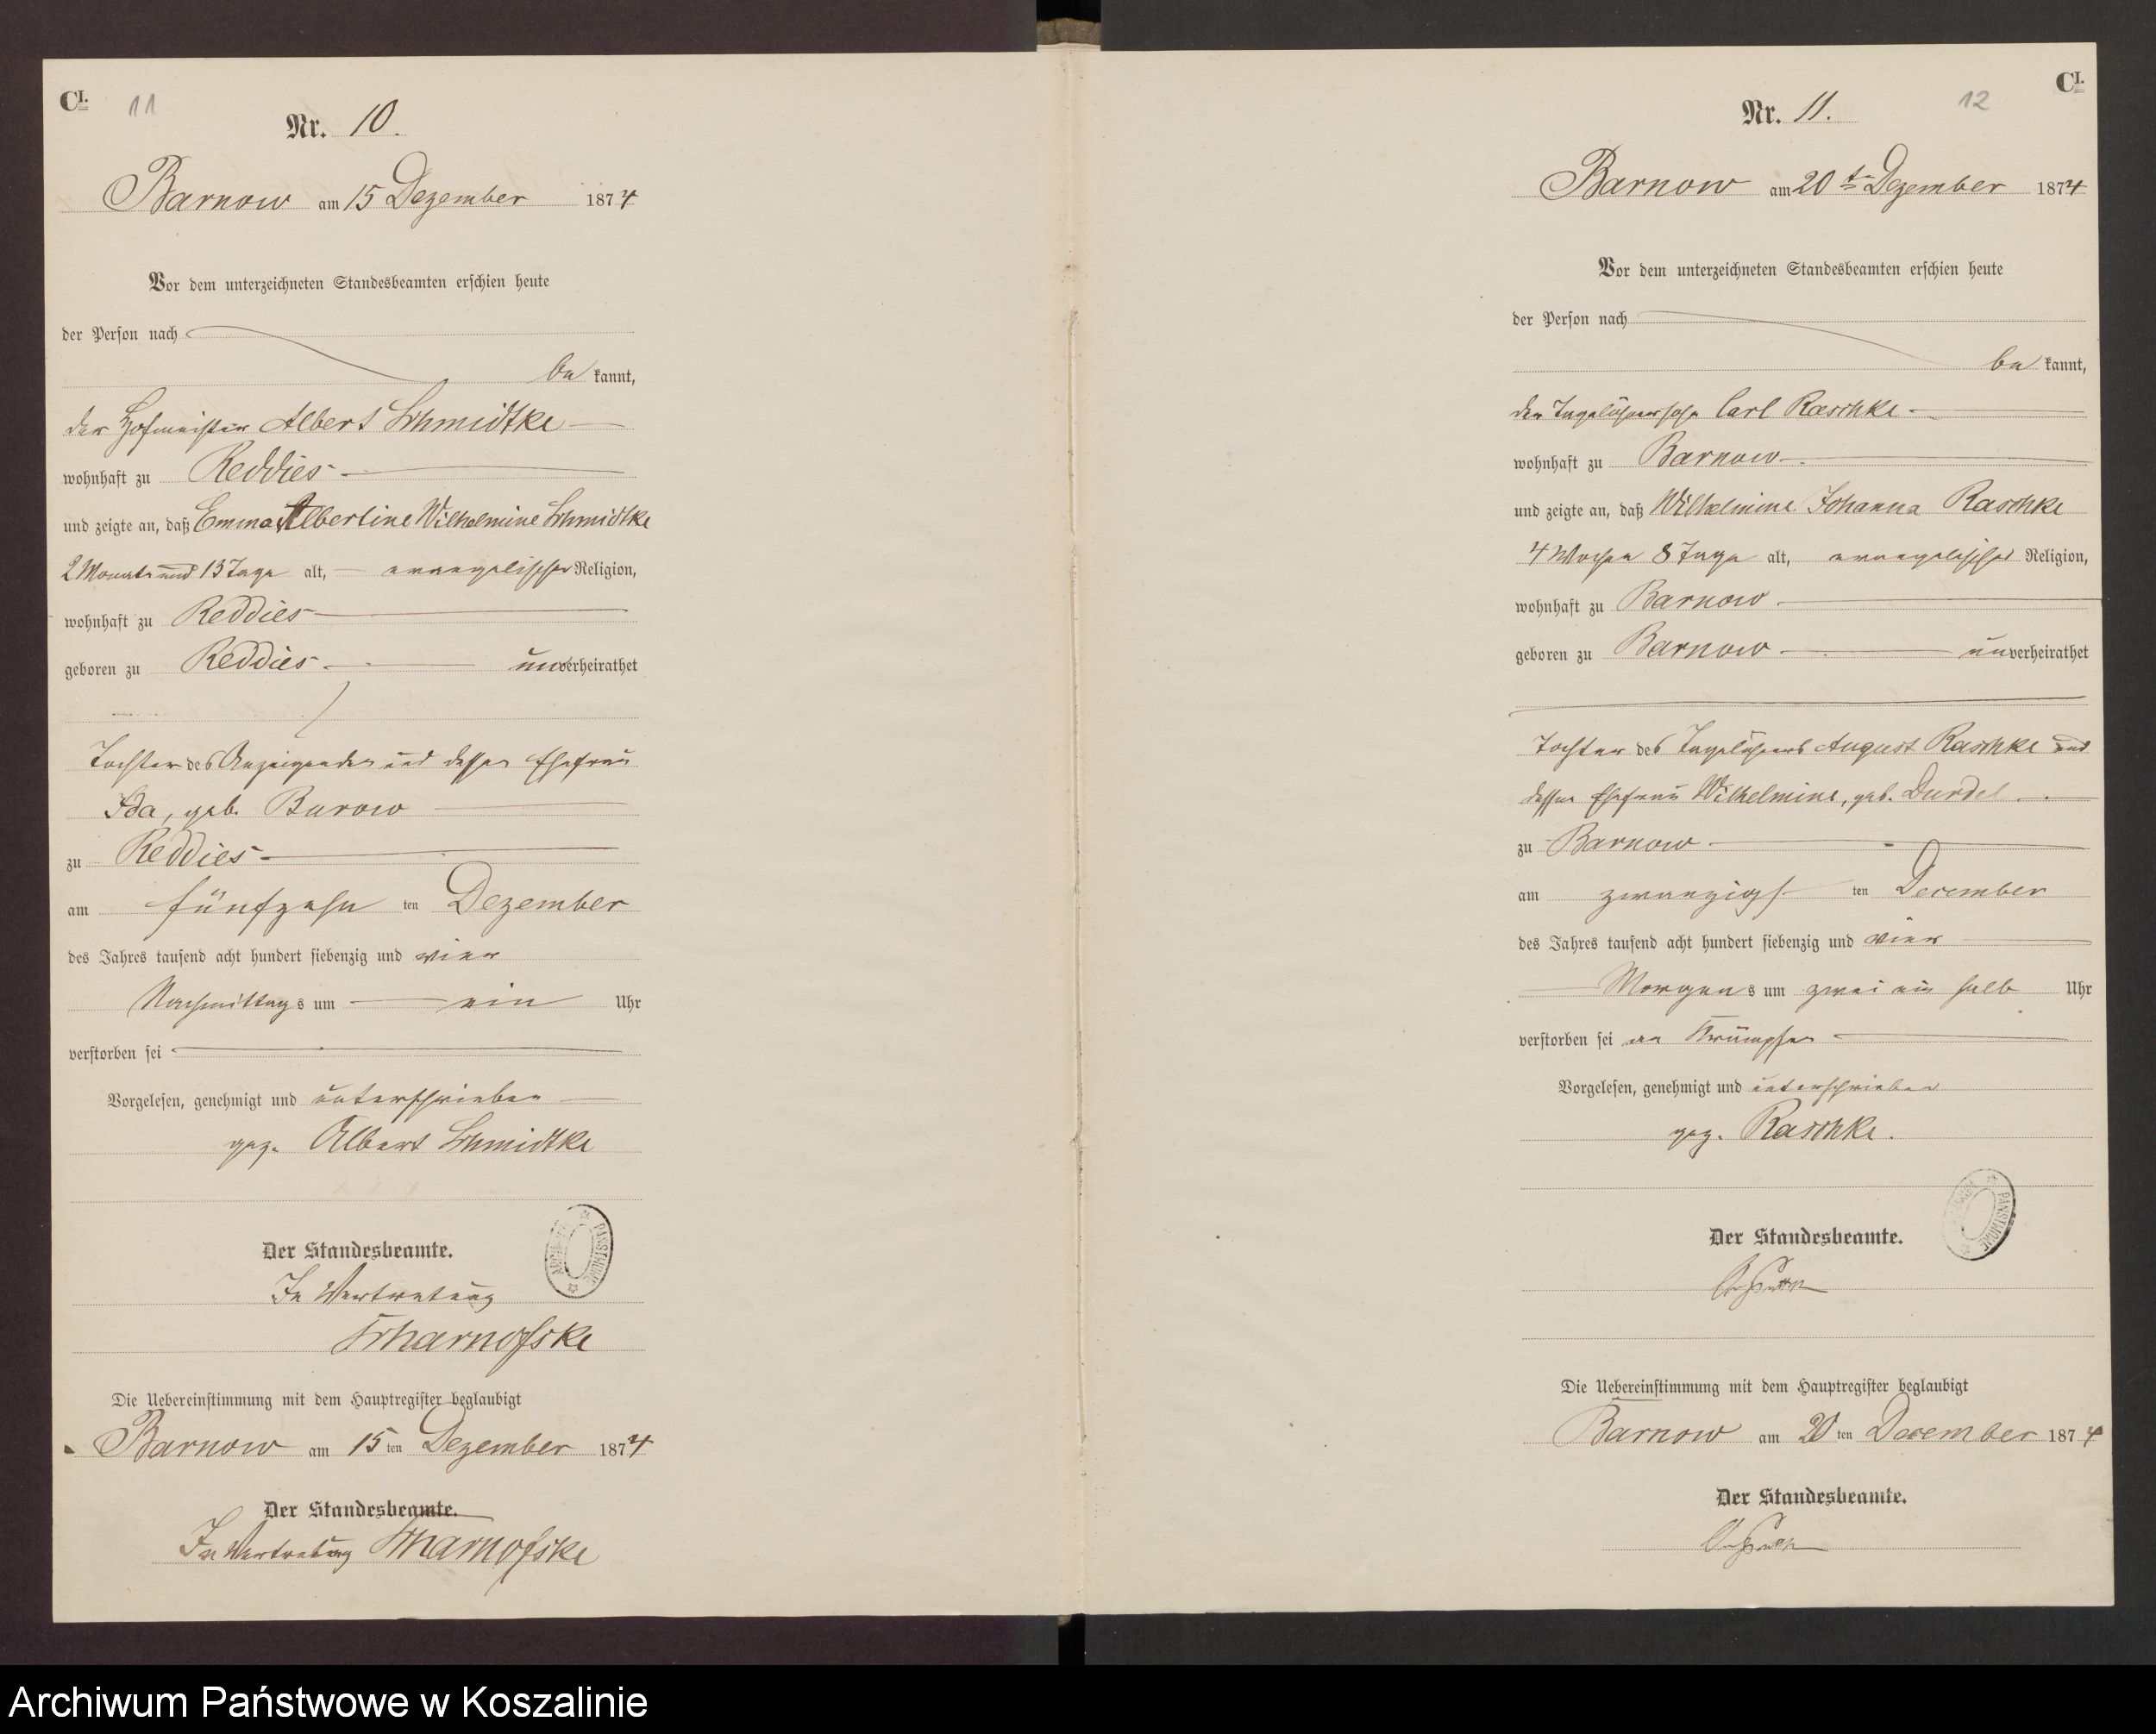 CI.
11
Nr. 10.
Barnow am 15 Dezember 1874
Vor dem unterzeichneten Standesbeamten erschien heute
der Person nach
be kannt,
der Hofmeister Albert Schmidtke
wohnhaft zu Reddies
und zeigte an, daß Emma Albertine Wilhelmine Schmidtke
2 Monate und 13 Tage alt, evangelischer Religion,
wohnhaft zu Reddies
geboren zu Reddies unverheirathet
Tochter des Anzeigenden und dessen Ehefrau
Ida, geb. Burow
zu Reddies
am fünfzehn ten Dezember
des Jahres tausend acht hundert siebenzig und vier
Nachmittags um ein Uhr
verstorben sei
Vorgelesen, genehmigt und unterschrieben
gez. Albert Schmidtke
Der Standesbeamte.
In Vertretung
Scharnofske
Die Uebereinstimmung mit dem Hauptregister beglaubigt
Barnow am 15 ten Dezember 1874
Der Standesbeamte.
In Vertretung Scharnofske
CI.
12
Nr. 11.
Barnow am 20 ten Dezember 1874
Vor dem unterzeichneten Standesbeamten erschien heute
der Person nach
be kannt,
der Tagelöhnersohn Carl Raschke
wohnhaft zu Barnow
und zeigte an, daß Wilhelmine Johanna Raschke
4 Wochen 8 Tage alt, evangelischer Religion,
wohnhaft zu Barnow
geboren zu Barnow unverheirathet
Tochter des Tagelöhners August Raschke und
dessen Ehefrau Wilhelmine, geb. Durdel
zu Barnow
am zwanzigs ten December
des Jahres tausend acht hundert siebenzig und vier
Morgens um zwei ein halb Uhr
verstorben sei an Krämpfen
Vorgelesen, genehmigt und unterschrieben
gez. Raschke.
Der Standesbeamte.
Die Uebereinstimmung mit dem Hauptregister beglaubigt
Barnow am 20 ten December 1874
Der Standesbeamte.
Archiwum Państwowe w Koszalinie